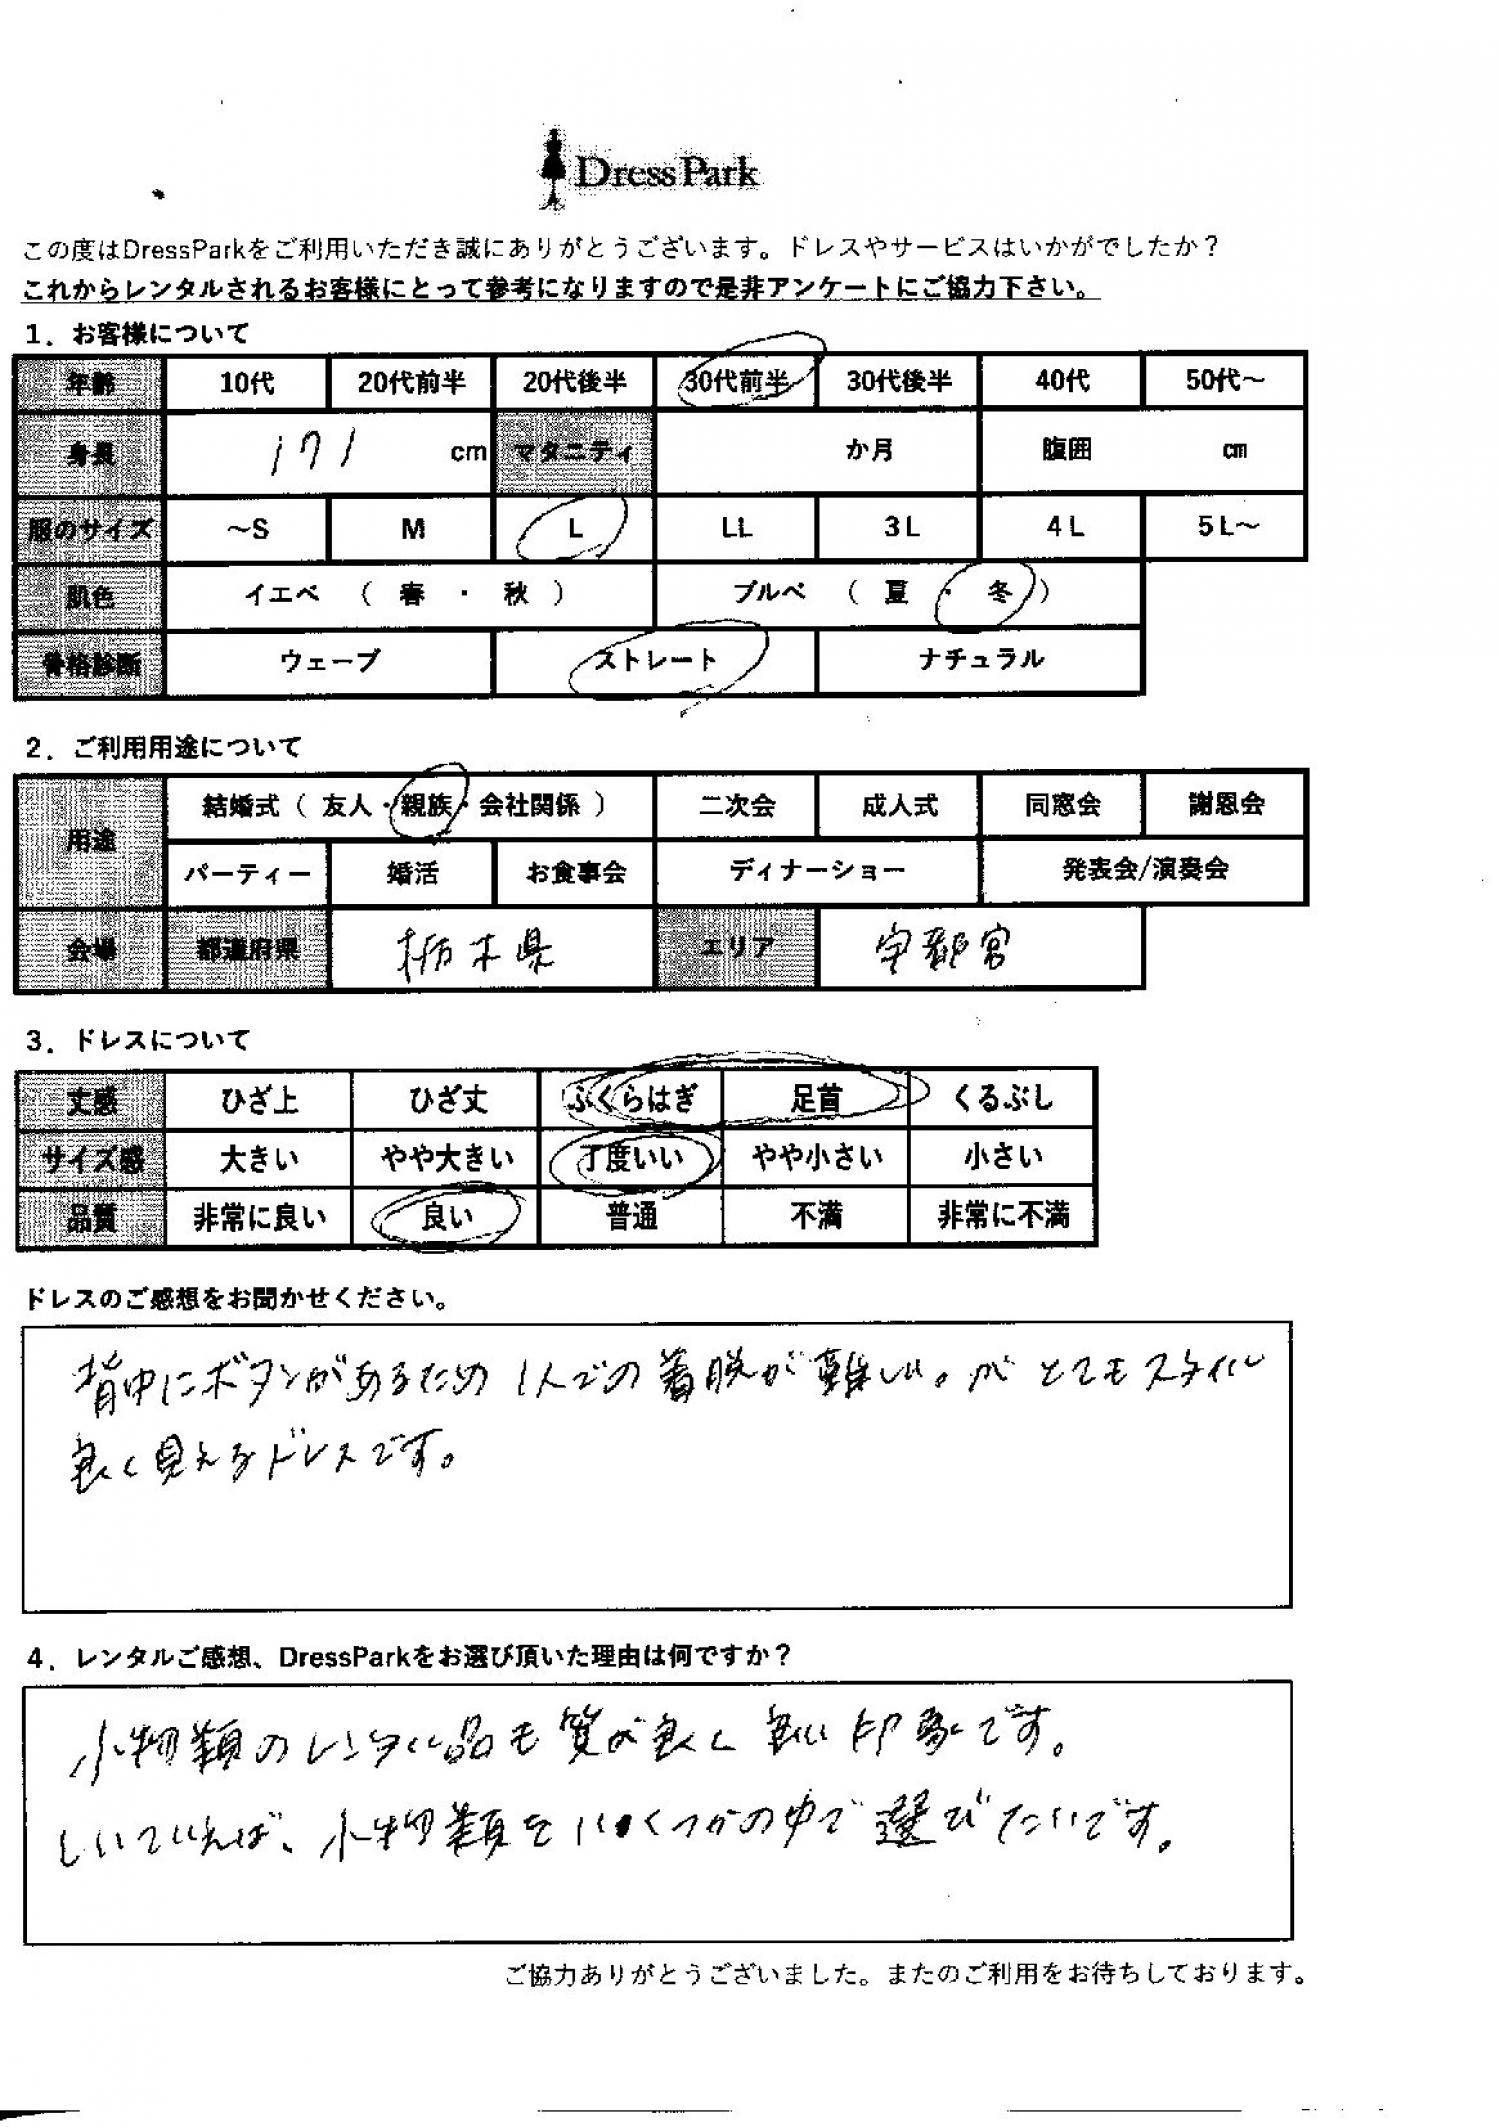 DressPark
この度はDressParkをご利用いただき誠にありがとうございます。ドレスやサービスはいかがでしたか？
これからレンタルされるお客様にとって参考になりますので是非アンケートにご協力下さい。
1．お客様について
年齢 10代 20代前半 20代後半 30代前半 30代後半 40代 50代～
身長 171 cm マタニティ か月 腹囲 cm
服のサイズ ～S M L LL 3L 4L 5L～
肌色 イエベ （ 春 ・ 秋 ） ブルベ （ 夏 ・ 冬 ）
骨格診断 ウェーブ ストレート ナチュラル
2．ご利用用途について
用途 結婚式（ 友人・親族・会社関係 ） 二次会 成人式 同窓会 謝恩会
パーティー 婚活 お食事会 ディナーショー 発表会/演奏会
会場 都道府県 栃木県 エリア 宇都宮
3．ドレスについて
丈感 ひざ上 ひざ丈 ふくらはぎ 足首 くるぶし
サイズ感 大きい やや大きい 丁度いい やや小さい 小さい
品質 非常に良い 良い 普通 不満 非常に不満
ドレスのご感想をお聞かせください。
背中にボタンがあるため1人での着脱が難しい。が とてもスタイル
良く見えるドレスです。
4．レンタルご感想、DressParkをお選び頂いた理由は何ですか？
小物類のレンタル品も質が良く 良い印象です。
しいていえば、小物類をいくつかの中で選びたいです。
ご協力ありがとうございました。またのご利用をお待ちしております。